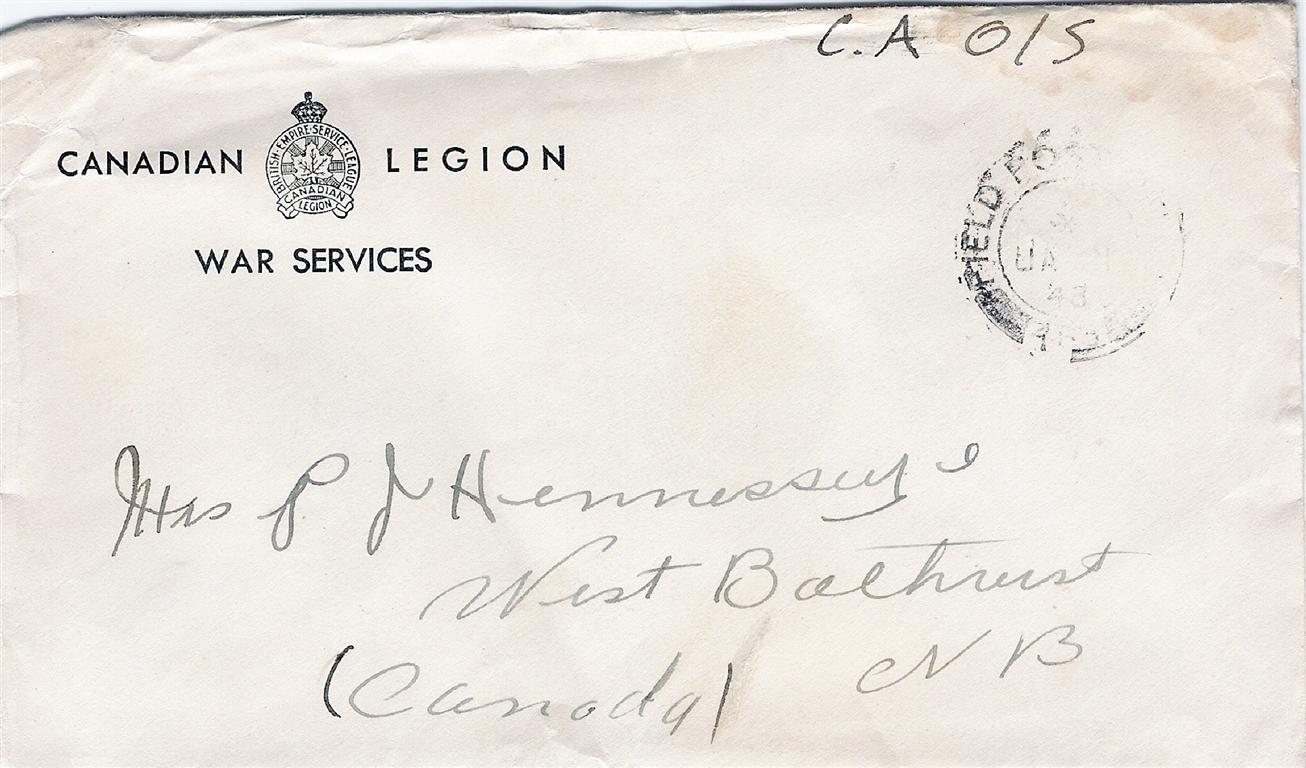 C.A O/S
CANADIAN LEGION
BRITISH·EMPIRE·SERVICE·LEAGUE
CANADIAN
LEGION
WAR SERVICES
FIELD POST
JA
43
Mrs P J Hennessy
West Bathurst
(Canada) NB